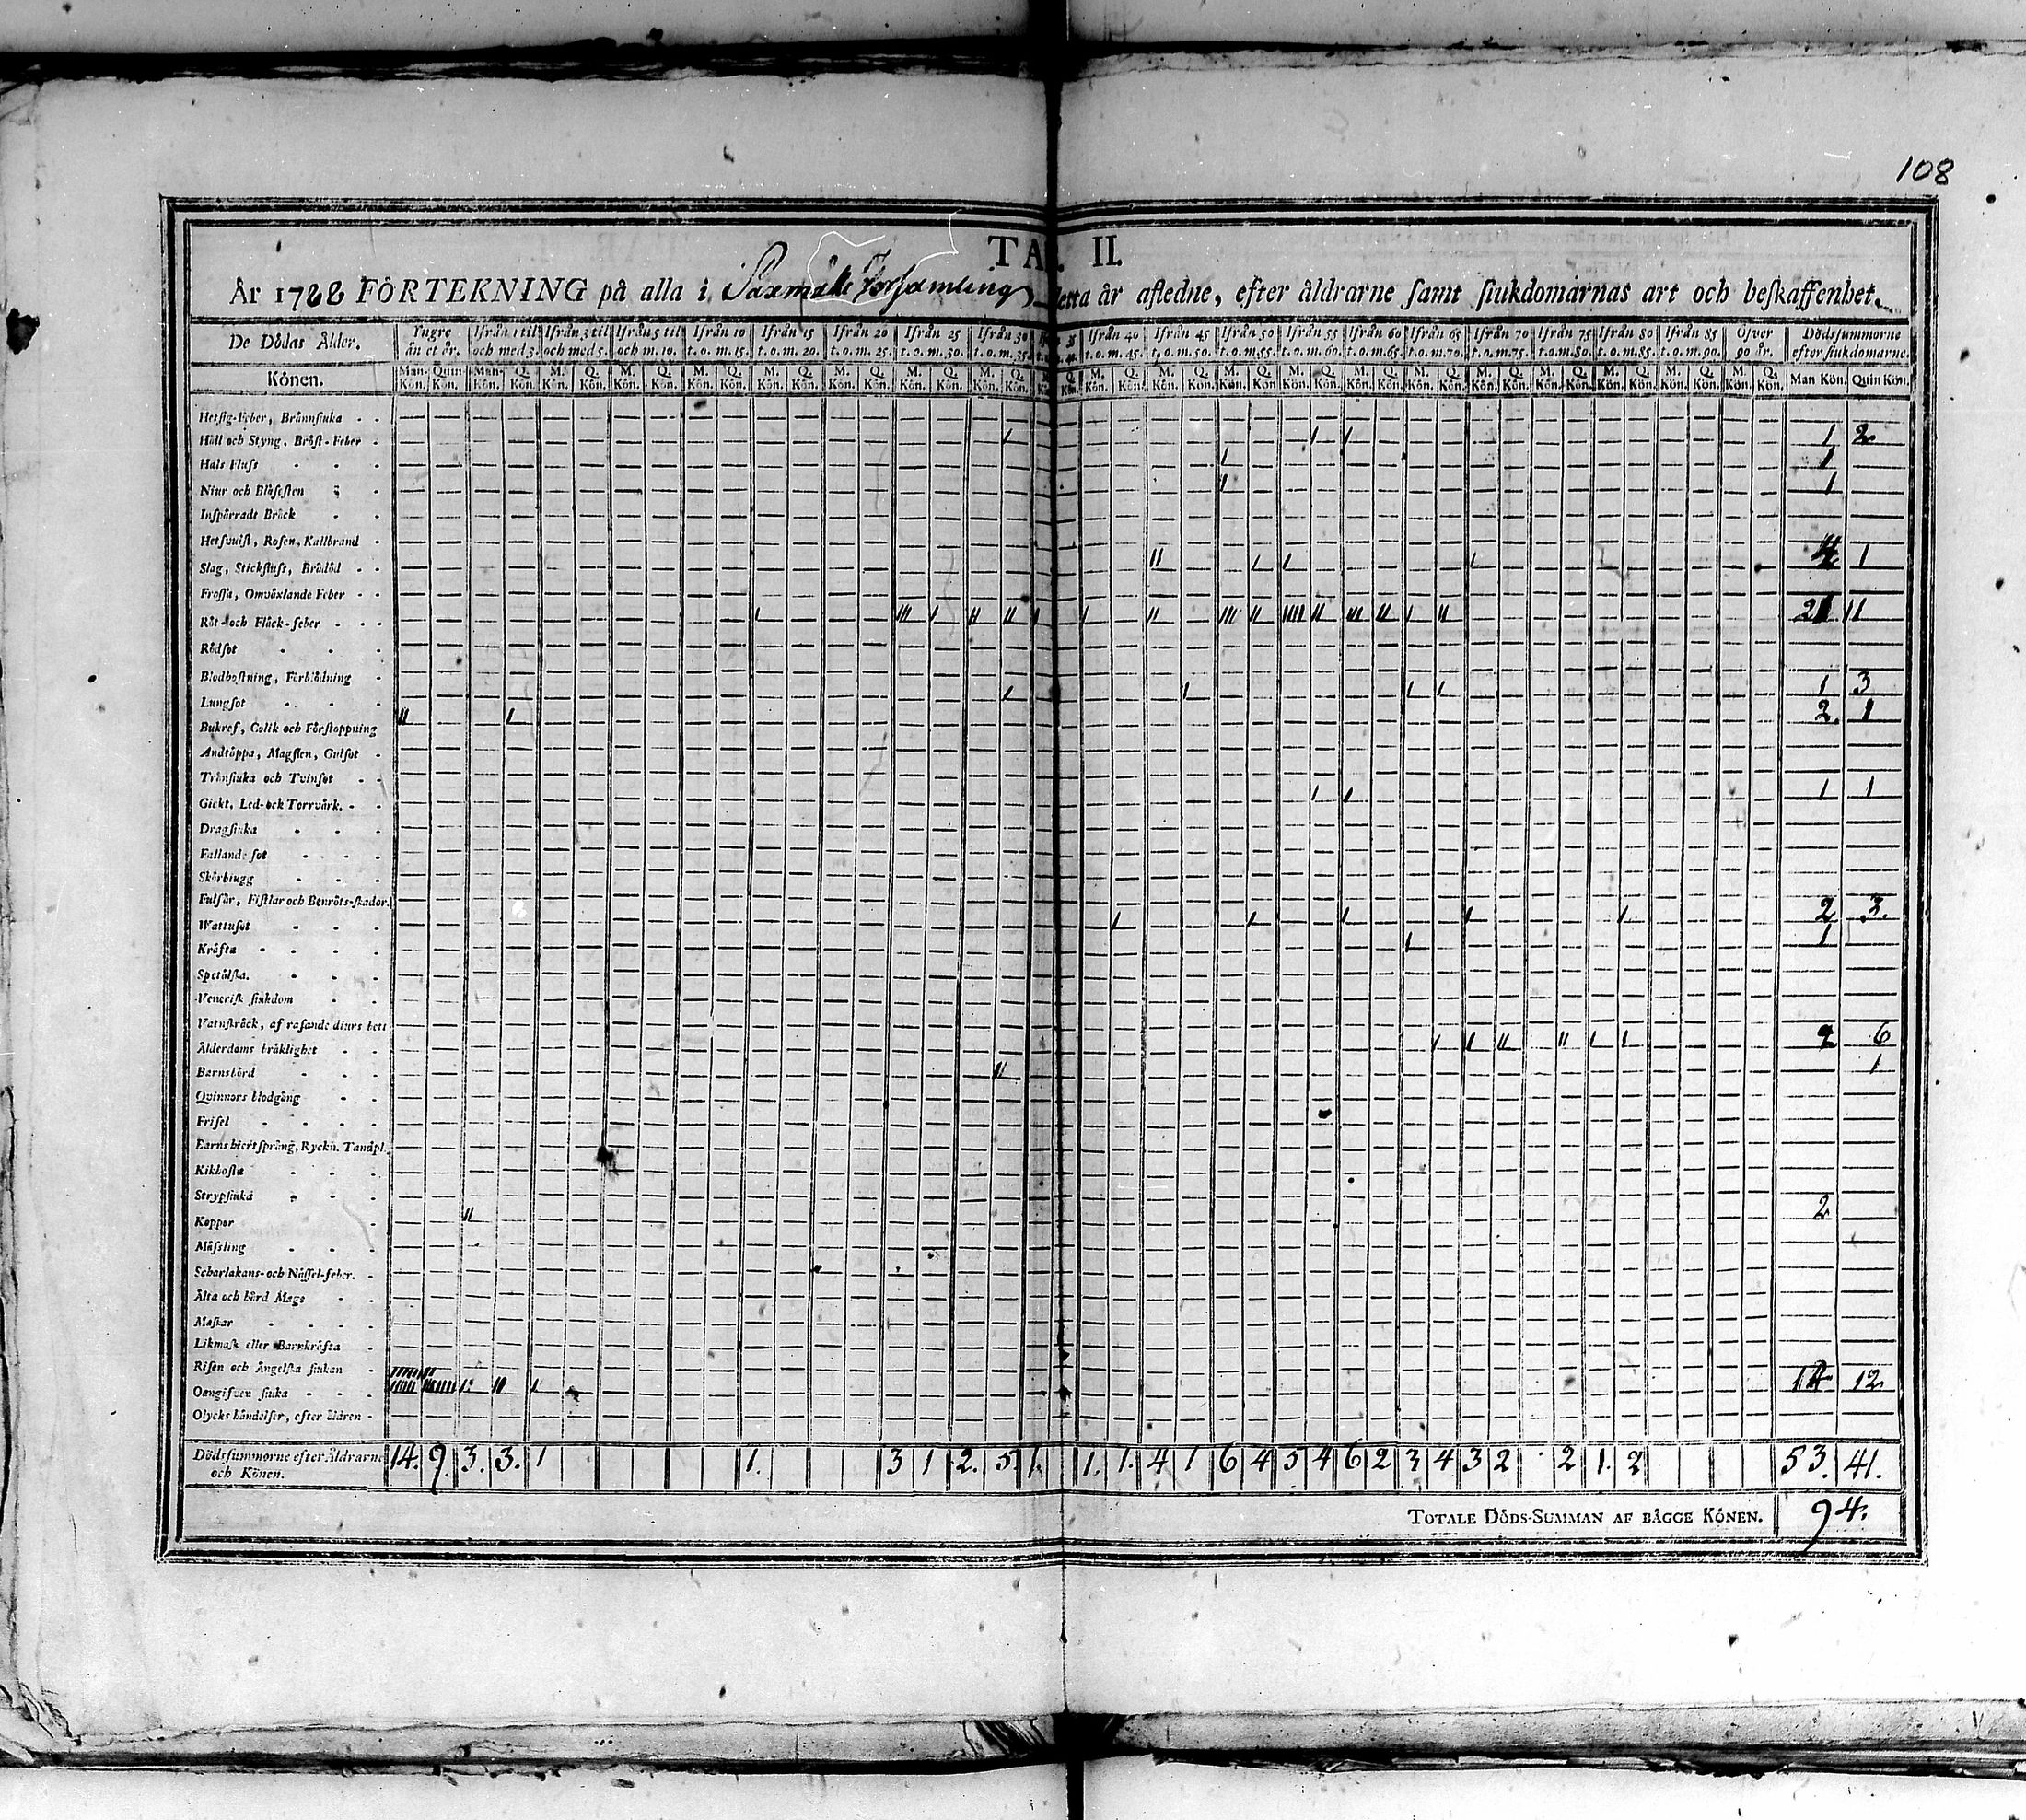 108
TA. II.
År 1788 FÖRTEKNING på alla i Saxmåki Församling detta år afledne, efter åldrarne samt siukdomarnas art och beskaffenhet.
De Dödas Ålder. Yngre än et år. Ifrån 1 til och med 3. Ifrån 3 til och med 5. Ifrån 5 til och m. 10. Ifrån 10 t. o. m. 15. Ifrån 15 t. o. m. 20. Ifrån 20 t. o. m. 25. Ifrån 25 t. o. m. 30. Ifrån 30 t. o. m. 35. Ifrån 40 t. o. m. 45. Ifrån 45 t. o. m. 50. Ifrån 50 t. o. m. 55. Ifrån 55 t. o. m. 60. Ifrån 60 t. o. m. 65. Ifrån 65 t. o. m. 70. Ifrån 70 t. o. m. 75. Ifrån 75 t. o. m. 80. Ifrån 80 t. o. m. 85. Ifrån 85 t. o. m. 90. Öfver 90 år. Dödssummorne efter siukdomarne.
Könen. Man-Kön. Quin Kön. Man-Kön. Q. Kön. M. Kön. Q. Kön. M. Kön. Q. Kön. M. Kön. Q. Kön. M. Kön. Q. Kön. M. Kön. Q. Kön. M. Kön. Q. Kön. M. Kön. Q. Kön. Q. Kön. M. Kön. Q. Kön. M. Kön. Q. Kön. M. Kön. Q. Kön. M. Kön. Q. Kön. M. Kön. Q. Kön. M. Kön. Q. Kön. M. Kön. Q. Kön. M. Kön. Q. Kön. M. Kön. Q. Kön. M. Kön. Q. Kön. M. Kön. Q. Kön. Man Kön. Quin Kön.
Hetsig-Feber, Brännsiuka
Håll och Styng, Bröst-Feber 1 1 1 1 2
Hals Fluss 1 1
Niur och Blåsesten 1 1
Inspärradt Bråck
Hetsvulst, Rosen, Kallbrand
Slag, Stickfluss, Brådöd 11 1 1 1 4 1
Frossa, Omväxlande Feber
Röt- och Fläck-feber 1 1111 1 11 11 1 1 11 1111 11 11111 11 111 11 1 11 21 11
Rödsot
Blodhostning, Förblödning
Lungsot 1 1 1 1 1 3
Bukref, Colik och Förstoppning 11 1 2 1
Andtäppa, Magsten, Gulsot
Trånsiuka och Tvinsot
Gickt, Led- ock Torrvärk. 1 1 1 1
Dragsiuka
Falland-sot
Skörbiugg
Fulsår, Fistlar och Benröts-skador.
Wattusot 1 1 1 1 1 2 3.
Kräfta 1 1
Spetälska.
Venerisk siukdom
Vatnskräck, af rasande diurs bett
Ålderdoms bräklighet 1 1 11 11 1 1 2 6
Barnsbörd 11 1
Qvinnors blodgång
Frisel
Barns hiertsprång, Ryckn. Tandpl.
Kikhosta
Strypsiuka
Koppor 11 2
Mässling
Scharlakans- och Nässel-feber.
Älta och hård Mage
Maskar
Likmask eller Barnkräfta
Risen och Ängelska siukan
Oangifven siuka 14 12
Olycks händelser, efter äldren
Dödssummorne efter åldrarne och Könen. 14. 9. 3. 3. 1 1. 3 1 2. 5. 1. 1. 1. 4 1 6 4 5 4 6 2 3 4 3 2 2 1. 2 53. 41.
TOTALE DÖDS-SUMMAN AF BÄGGE KÖNEN. 94.